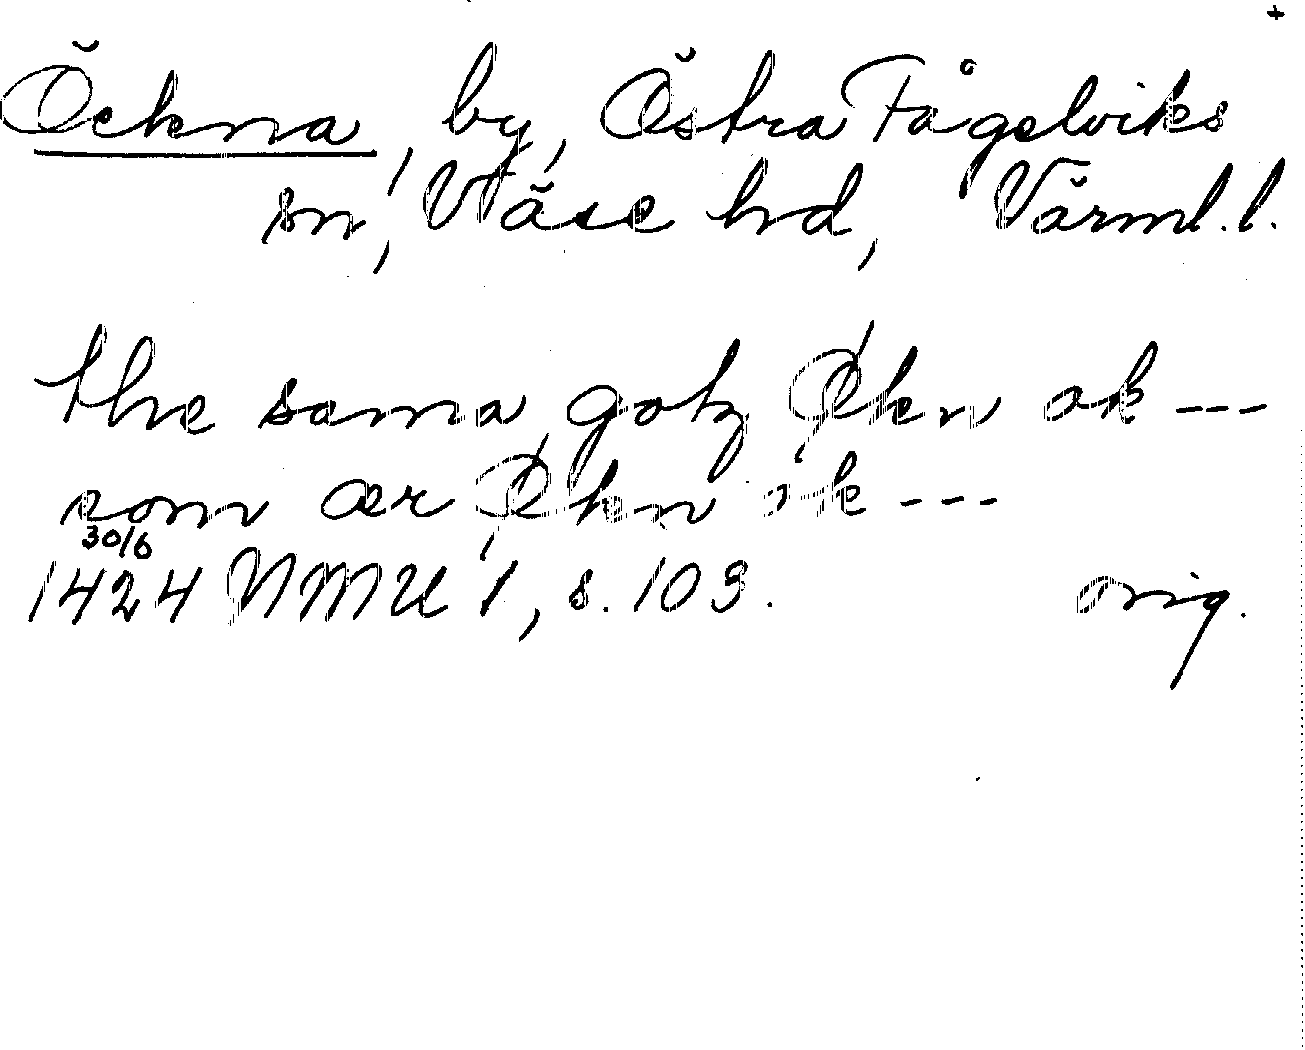 +
Öckna, by, Östra Fågelviks
sn, Väse hd, Värml. l.
the sama gotz Øken ok ---
som ær Økn ok ---
30/6
1424 NMU 1, s. 103. orig.